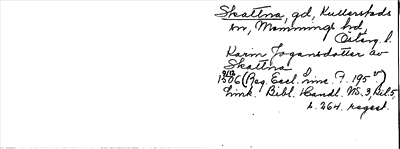 Skattna, gd, Kullerstads
sn, Memmings hd,
Österg. l.
Karin Jogansdotter av
Skattna
9/12
1506 (Reg. Eccl. Linc. F. 195 v)
Link. Bibl. Handl. NS. 3, Del. 5,
s. 264. regest.